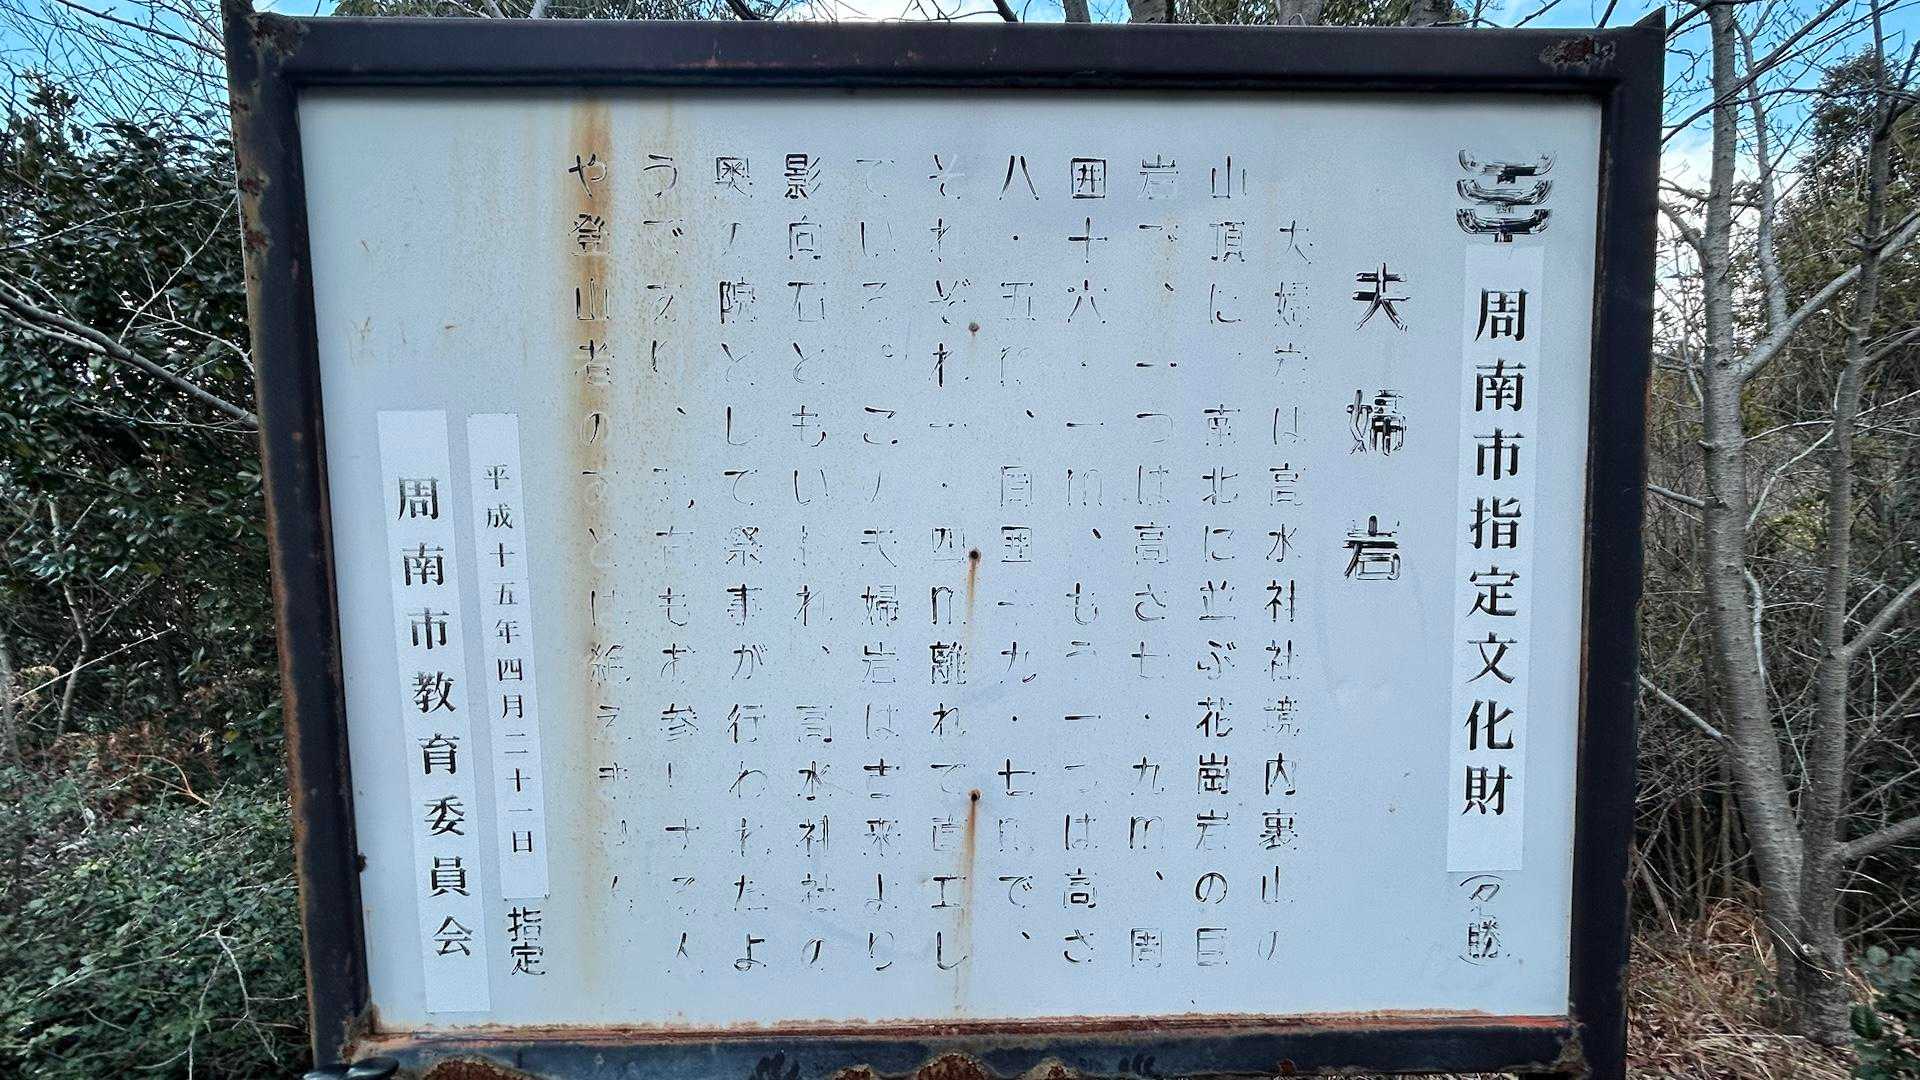 周南市指定文化財（名勝）
夫婦岩
夫婦岩は高水神社境内裏山の
山頂に、南北に並ぶ花崗岩の巨
岩で、一つは高さ七・九m、周
囲十六・一m、もう一つは高さ
八・五m、周囲十九・七mで、
それぞれ一・四m離れて直立し
ている。この夫婦岩は古来より
影向石ともいわれ、高水神社の
奥の院として祭事が行われたよ
うであり、現在もお参りする人
や登山者のあとは絶えません。
平成十五年四月二十一日指定
周南市教育委員会